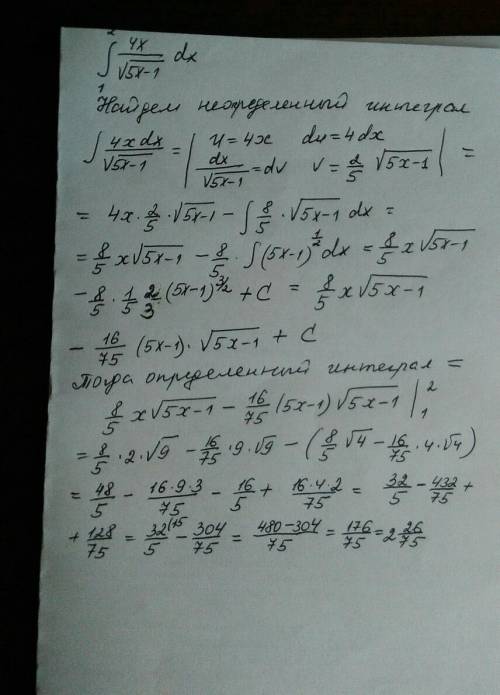 ∫₁² 4x/√(5x-1) dx
Найдем неопределенный интеграл
∫ 4x dx/√(5x-1) = | u = 4x   du = 4dx   dx/√(5x-1) = dv   v = 2/5 √(5x-1) | =
= 4x · 2/5 · √(5x-1) - ∫ 8/5 · √(5x-1) dx =
= 8/5 x√(5x-1) - 8/5 · ∫ (5x-1)^(1/2) dx = 8/5 x√(5x-1)
- 8/5 · 1/5 · 2/3 (5x-1)^(3/2) + C = 8/5 x√(5x-1)
- 16/75 (5x-1) · √(5x-1) + C
Тогда определенный интеграл =
8/5 x√(5x-1) - 16/75 (5x-1)√(5x-1) |₁²
= 8/5 · 2 · √9 - 16/75 · 9 · √9 - (8/5 √4 - 16/75 · 4 · √4)
= 48/5 - 16·9·3/75 - 16/5 + 16·4·2/75 = 32/5 - 432/75 +
+ 128/75 = 32/5 (15 - 304/75 = 480-304/75 = 176/75 = 2 26/75